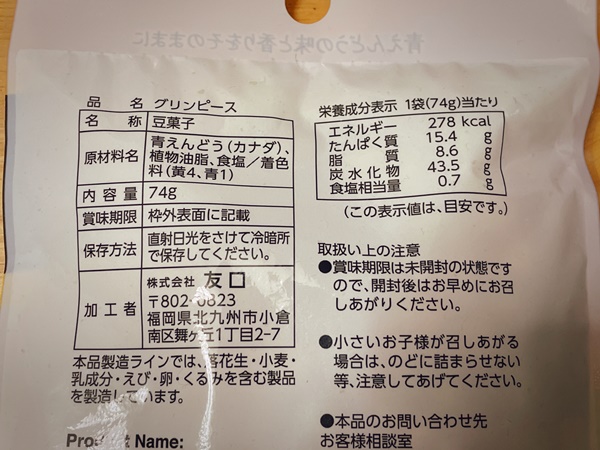 品名 グリンピース
名称 豆菓子
原材料名 青えんどう(カナダ)、
植物油脂、食塩／着色
料(黄4、青1)
内容量 74g
賞味期限 枠外表面に記載
保存方法 直射日光をさけて冷暗所
で保存してください。
加工者 株式会社 友口
〒802-0823
福岡県北九州市小倉
南区舞ヶ丘1丁目2-7
本品製造ラインでは、落花生・小麦・
乳成分・えび・卵・くるみを含む製品
を製造しています。
Product Name:
栄養成分表示 1袋(74g)当たり
エネルギー 278 kcal
たんぱく質 15.4 g
脂質 8.6 g
炭水化物 43.5 g
食塩相当量 0.7 g
(この表示値は、目安です。)
取扱い上の注意
●賞味期限は未開封の状態です
ので、開封後はお早めにお召
しあがりください。
●小さいお子様が召しあがる
場合は、のどに詰まらせない
等、注意してあげてください。
●本品のお問い合わせ先
お客様相談室